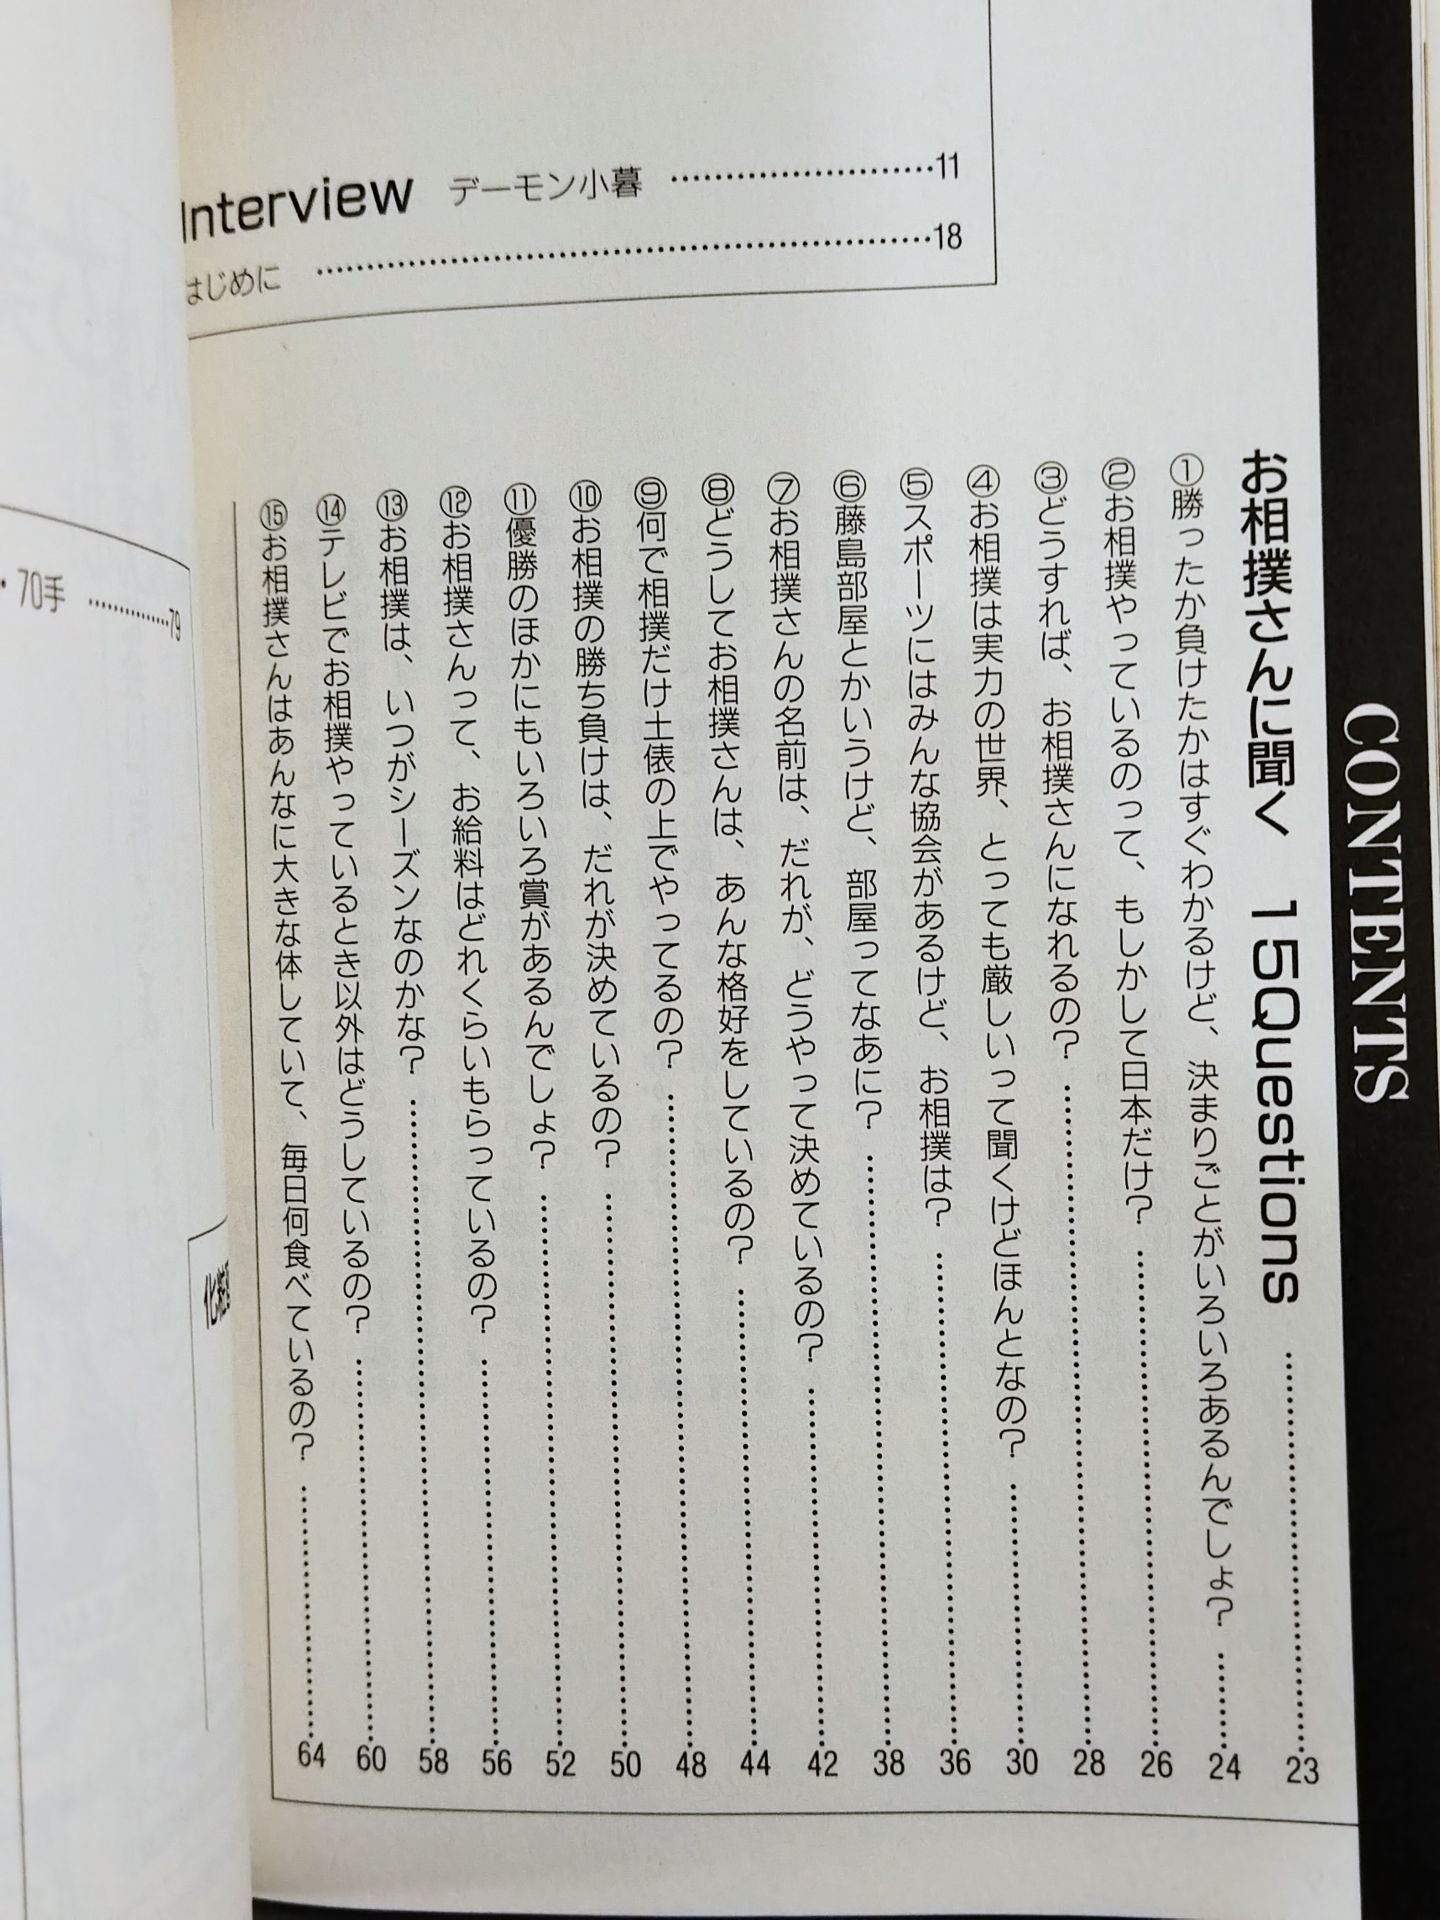 CONTENTS
Interview デーモン小暮 ……………………11
はじめに ……………………18
お相撲さんに聞く 15Questions ……………………23
①勝ったか負けたかはすぐわかるけど、決まりごとがいろいろあるんでしょ？ ………24
②お相撲やっているのって、もしかして日本だけ？ ……………………26
③どうすれば、お相撲さんになれるの？ ……………………28
④お相撲は実力の世界、とっても厳しいって聞くけどほんとなの？ ……………………30
⑤スポーツにはみんな協会があるけど、お相撲は？ ……………………36
⑥藤島部屋とかいうけど、部屋ってなあに？ ……………………38
⑦お相撲さんの名前は、だれが、どうやって決めているの？ ……………………42
⑧どうしてお相撲さんは、あんな格好をしているの？ ……………………44
⑨何で相撲だけ土俵の上でやってるの？ ……………………48
⑩お相撲の勝ち負けは、だれが決めているの？ ……………………50
⑪優勝のほかにもいろいろ賞があるんでしょ？ ……………………52
⑫お相撲さんって、お給料はどれくらいもらっているの？ ……………………56
⑬お相撲は、いつがシーズンなのかな？ ……………………58
⑭テレビでお相撲やっているとき以外はどうしているの？ ……………………60
⑮お相撲さんはあんなに大きな体していて、毎日何食べているの？ ……………………64
・70手 ……………79
化粧